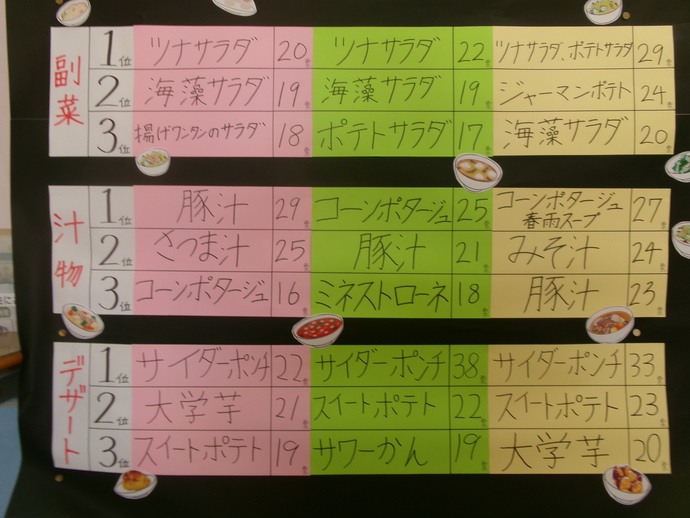 副菜
1位 ツナサラダ 20 ツナサラダ 22 ツナサラダ、ポテトサラダ 29
2位 海藻サラダ 19 海藻サラダ 19 ジャーマンポテト 24
3位 揚げワンタンのサラダ 18 ポテトサラダ 17 海藻サラダ 20
汁物
1位 豚汁 29 コーンポタージュ 25 コーンポタージュ 27
春雨スープ
2位 さつま汁 25 豚汁 21 みそ汁 24
3位 コーンポタージュ 16 ミネストローネ 18 豚汁 23
デザート
1位 サイダーポンチ 22 サイダーポンチ 38 サイダーポンチ 33
2位 大学芋 21 スイートポテト 22 スイートポテト 23
3位 スイートポテト 19 サワーかん 19 大学芋 20